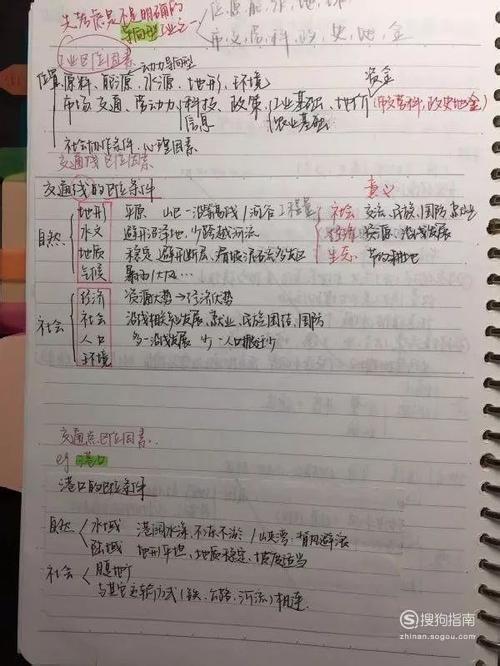 先考虑是不是明确的
导向型工业之一
位、原、能、水、地、环
市、交、劳、科、政、史、地、金
工业区位因素 动力导向型
位置 原料、能源、水源、地形、环境 资金
市场 交通、劳动力 科技、政策 工业基础、地价
信息 农业基础
社会协作条件、心理因素
交通线区位因素
交通线的区位条件 意义
自然 地形 平原 山区—沿等高线/河谷 工程量 社会 交流、民族、国防
水文 避开沼泽地、少跨越河流 经济 资源、沿线发展
地质 稳定 避开断层、滑坡泥石流多发区 生态 节约耕地
气候 暴雨大风…
社会 经济 资源优势→经济优势
社会 沿线相关产业发展、就业、民族团结、国防
人口 多—沿线发展 少—人口搬迁少
环境
交通点区位因素
eg 港口
港口的区位条件
自然 水域 港阔水深、不冻不淤/山 海湾、有利避浪
陆域 地形平坦、地质稳定、坡度适当
社会 腹地广
与其它运输方式(铁、公路、河流)相连
搜狗指南
zhinan.sogou.com